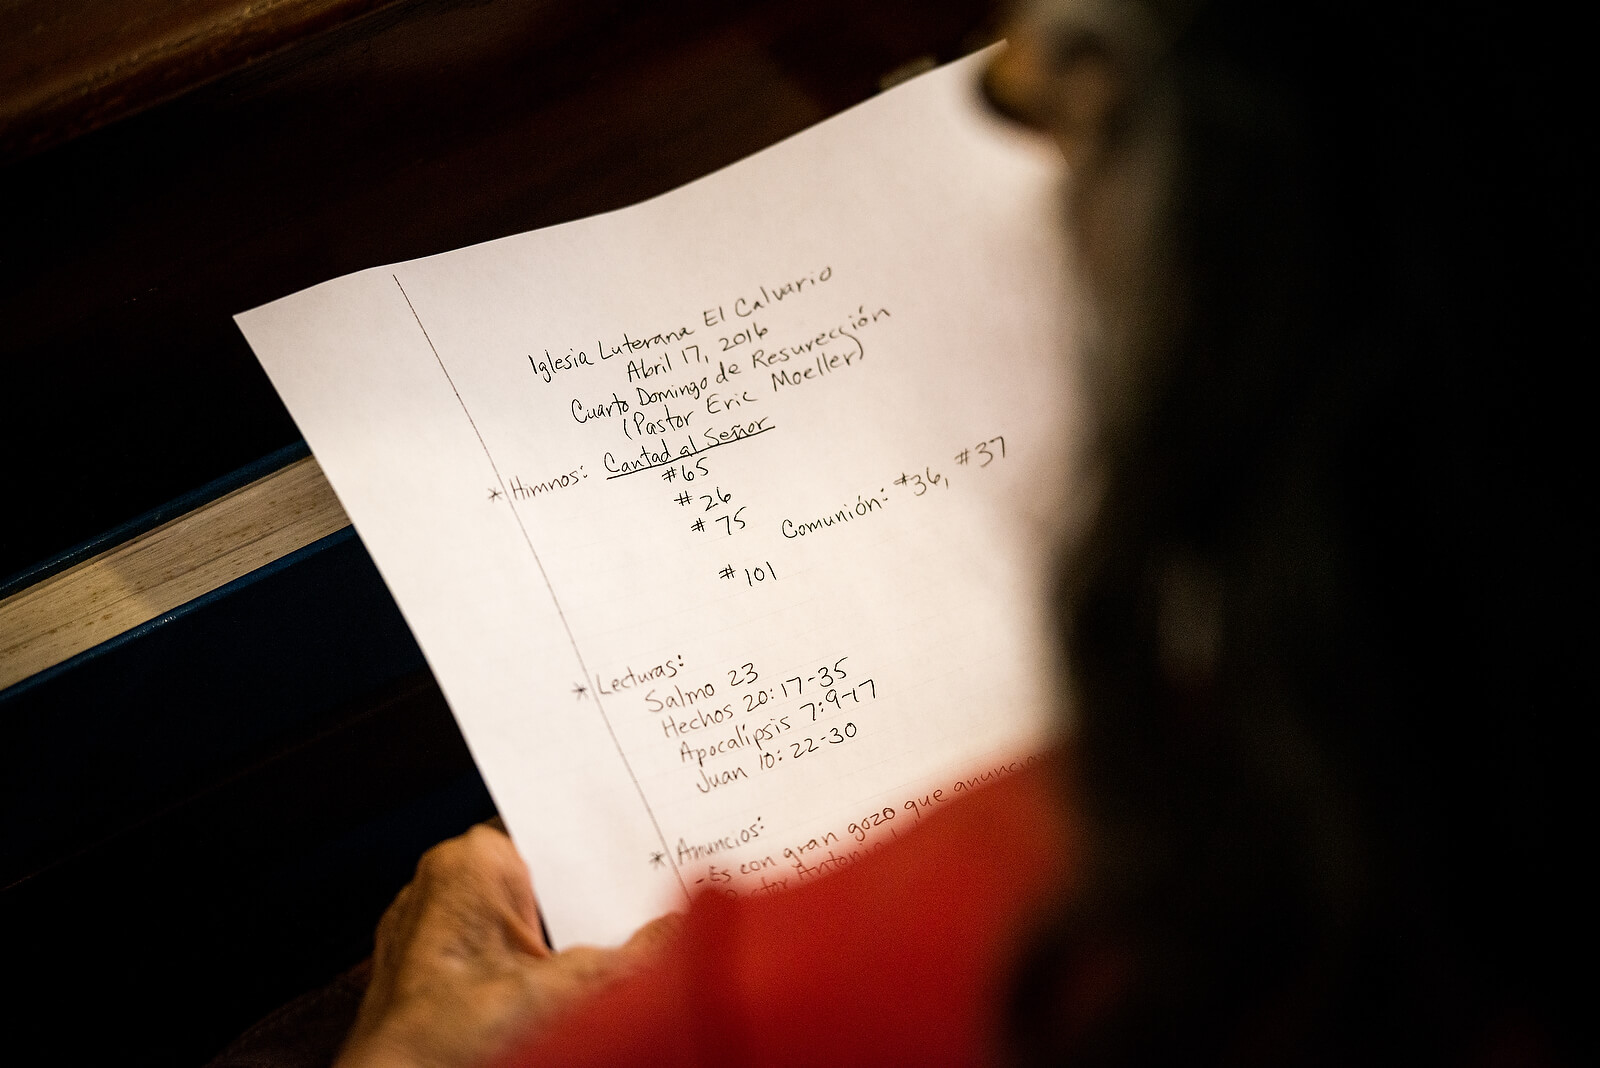 Iglesia Luterana El Calvario
Abril 17, 2016
Cuarto Domingo de Resurección
(Pastor Eric Moeller)
* Himnos: Cantad al Señor
#65
#26
#75 Comunión: #36, #37
#101
* Lecturas:
Salmo 23
Hechos 20:17-35
Apocalípsis 7:9-17
Juan 10:22-30
* Anuncios:
-Es con gran gozo que
Pastor Antonio